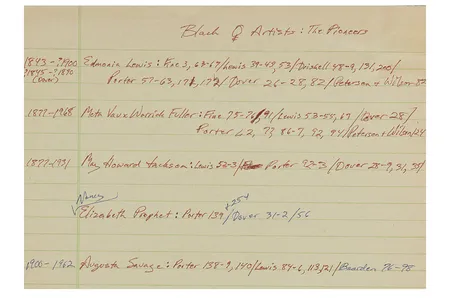 Black ♀ Artists: The Pioneers
1843-?1900 Edmonia Lewis: Fine 3, 63-67/Lewis 39-43, 53/Driskell 48-9, 131, 200/
?1845-?1890 Porter 57-63, 171, 172/Dover 26-28, 82/Peterson & Wilson
(Dover)
1877-1968 Meta Vaux Warrick Fuller: Fine 75-76/91/Lewis 53-55, 69/Dover 28/
Porter 62, 77, 86-7, 92, 94/Peterson & Wilson 24
1877-1931 May Howard Jackson: Lewis 52-3/ Porter 92-3/Dover 28-9, 31, 55/
Nancy +254
Elizabeth Prophet: Porter 139/Dover 31-2/56
1900-1962 Augusta Savage: Porter 138-9, 140/Lewis 84-6, 113, 121/Bearden 96-98